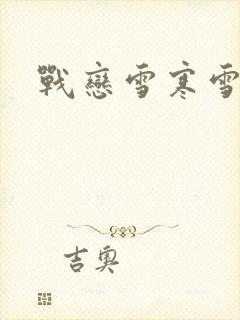 戰戀雪寒雪
吉奧